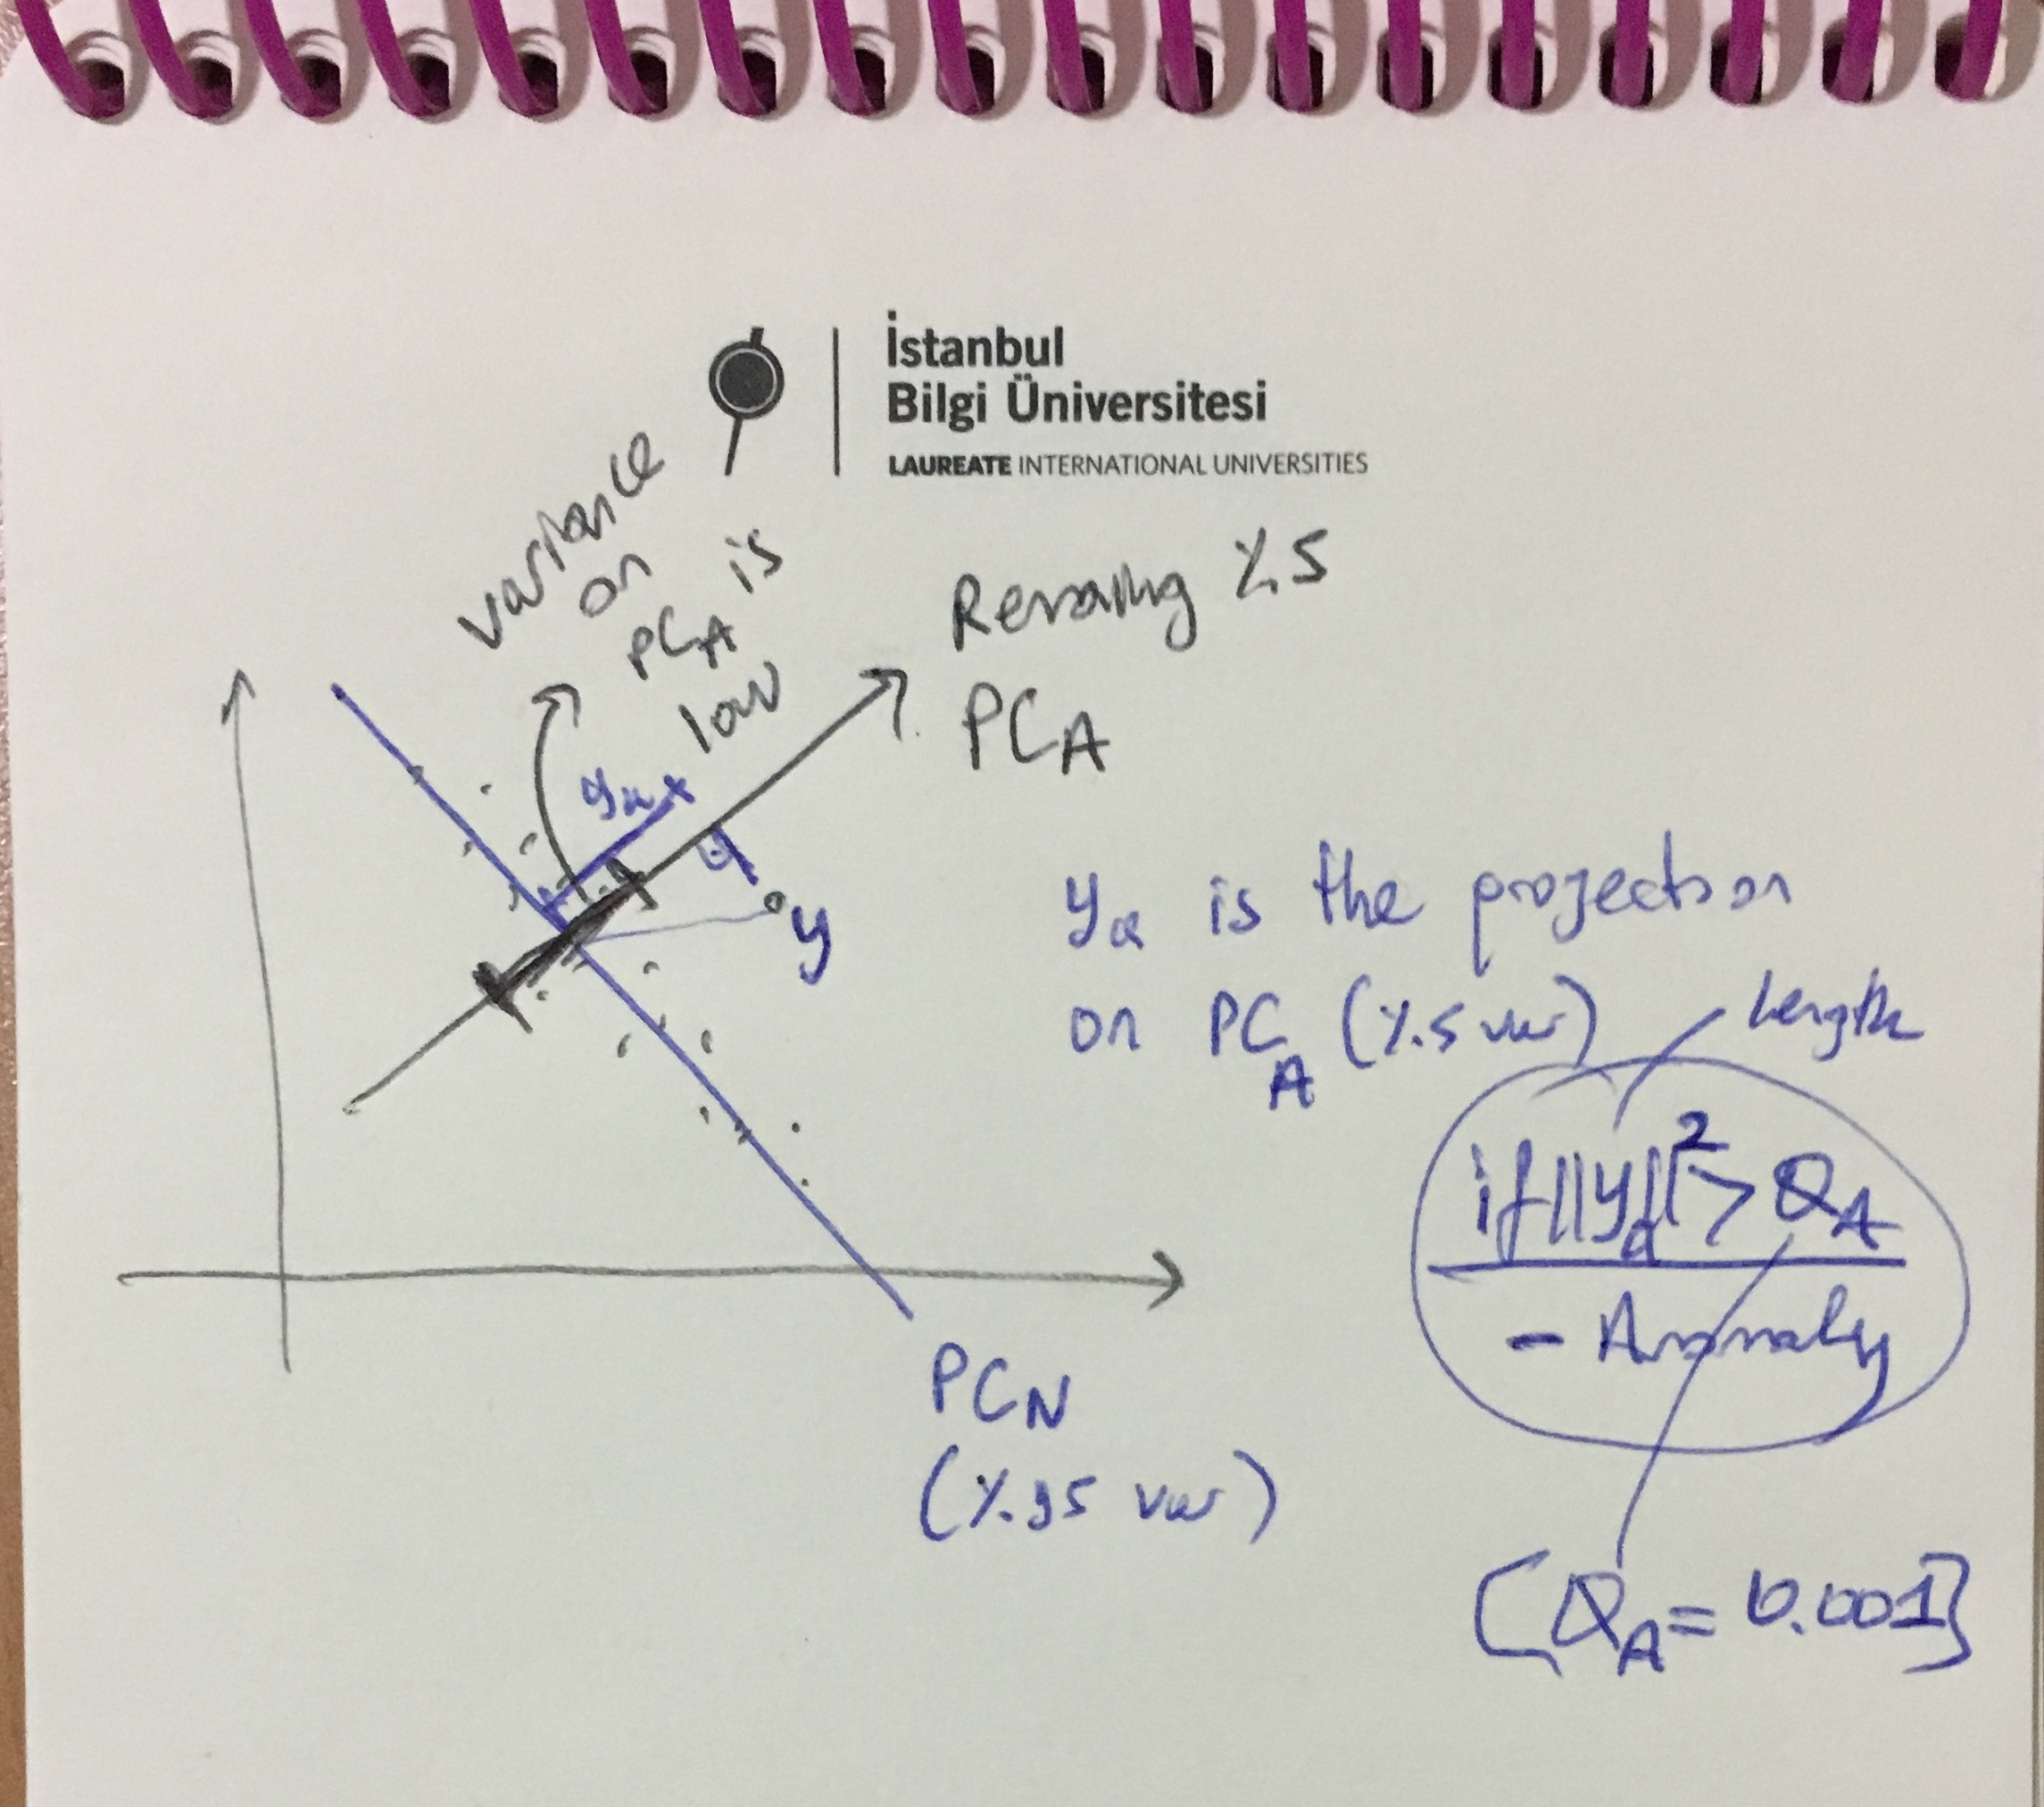 İstanbul
Bilgi Üniversitesi
LAUREATE INTERNATIONAL UNIVERSITIES
variance
on
PCA is
low
Remaing %5
PCA
ya
y
ya is the projection
on PCA (%5 var)
Length
if ||ya||² > QA
- Anomaly
PCN
(%95 var)
[QA = 0.001]